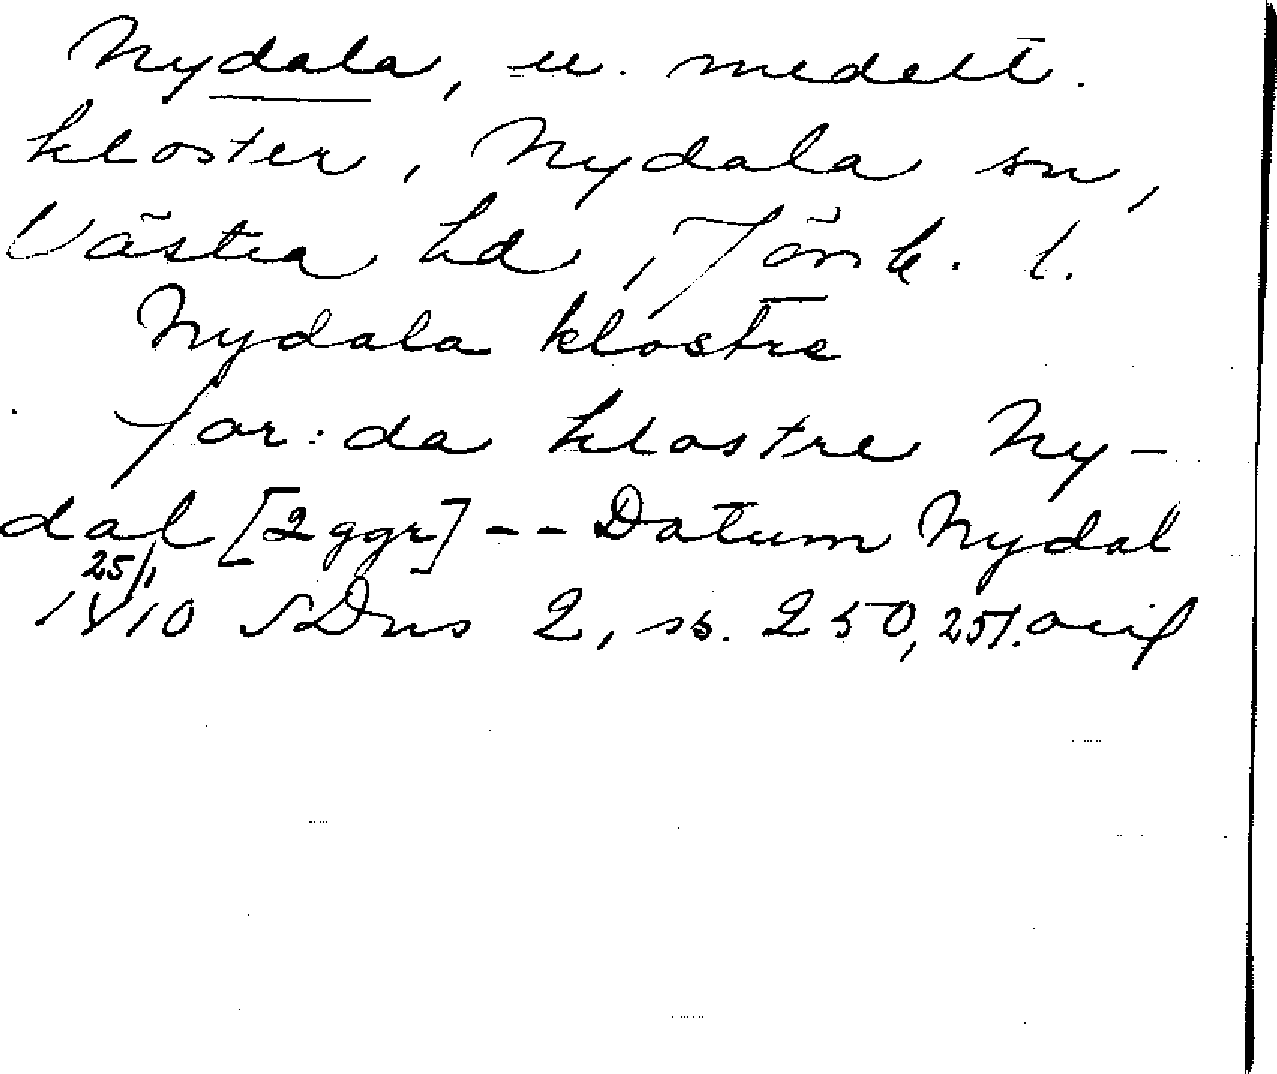 Nydala, u. medelt.
kloster, Nydala sn,
Västra hd, Jönk. l.
Nydala klostre
for:da klostre Ny-
dal [2 ggr] -- Datum Nydal
25/11 1410 SDns 2, ss. 250, 251. avil